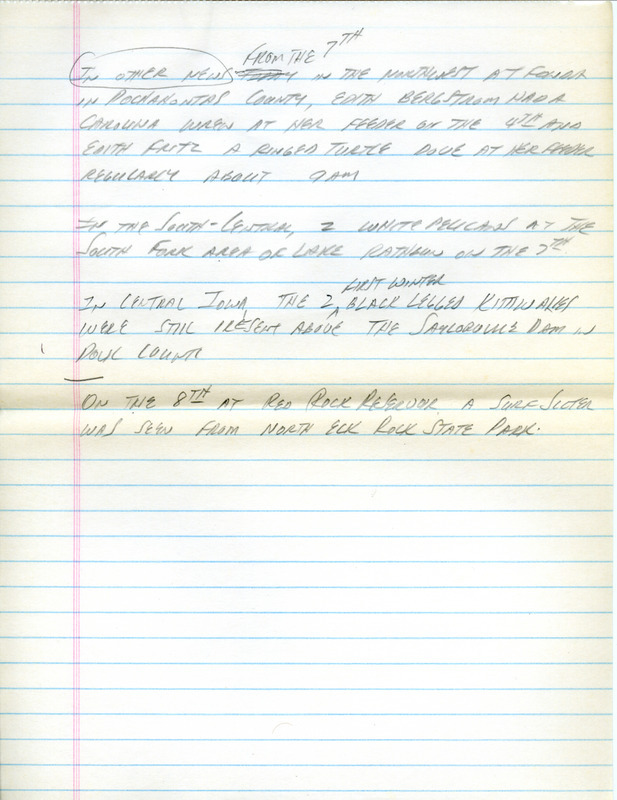 IN OTHER NEWS FROM THE 7TH IN THE NORTHWEST AT FONDA
IN POCHAHONTAS COUNTY, EDITH BERGSTROM HAD A
CAROLINA WREN AT HER FEEDER ON THE 4TH AND
EDITH FRITZ A RINGED TURTLE DOVE AT HER FEEDER
REGULARLY ABOUT 9AM
IN THE SOUTH-CENTRAL, 2 WHITE PELICANS AT THE
SOUTH FORK AREA OF LAKE RATHBUN ON THE 7TH.
IN CENTRAL IOWA, THE 2 FIRST WINTER BLACK LEGGED KITTIWAKES
WERE STILL PRESENT ABOVE THE SAYLORVILLE DAM IN
POLK COUNTY
ON THE 8TH AT RED ROCK RESERVOIR A SURF SCOTER
WAS SEEN FROM NORTH ELK ROCK STATE PARK.